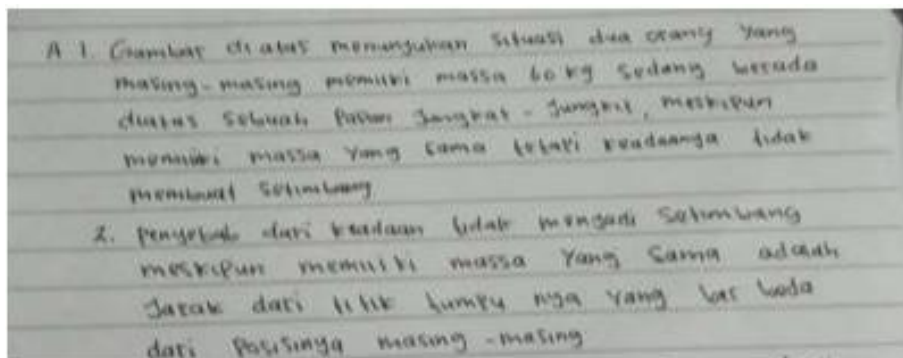 A 1. Gambar diatas menunjukan situasi dua orang yang
masing-masing memiliki massa 60 kg sedang berada
diatas sebuah papan Jungkat - Jungkit, meskipun
memiliki massa yang sama tetapi keadaanya tidak
membuat setimbang
2. Penyebab dari keadaan tidak mengadi setimbang
meskipun memiliki massa yang sama adalah
Jarak dari titik tumpu nya yang berbeda
dari Posisinya masing-masing